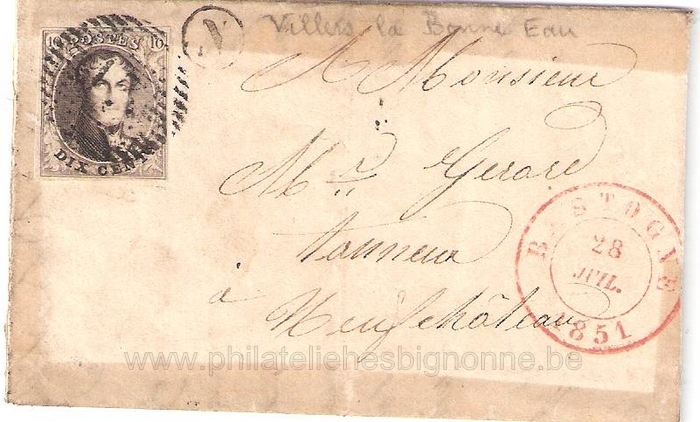 Villers la Bonne Eau
10 POSTES 10
DIX CENTS
A Monsieur
Mr. Gerard
tanneur
à Neufchâteau
BASTOGNE
28
JUIL.
1851
www.philateliehesbignonne.be